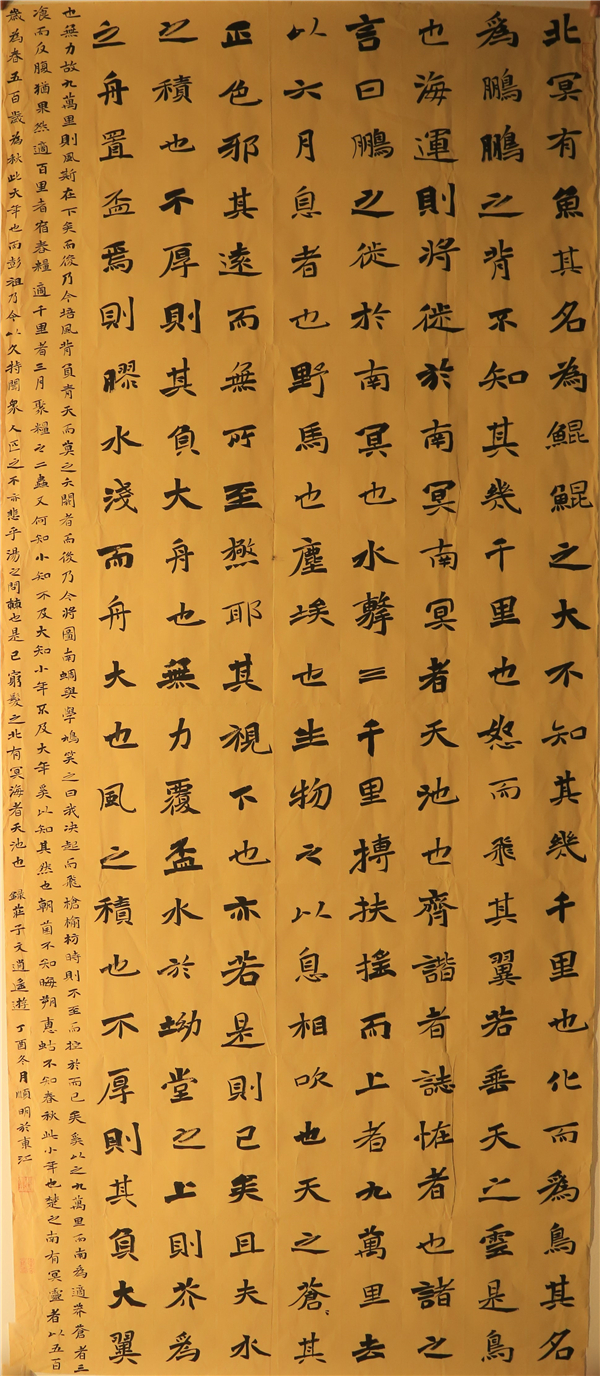 北冥有魚其名為鯤鯤之大不知其幾千里也化而爲鳥其名
爲鵬鵬之背不知其幾千里也怒而飛其翼若垂天之雲是鳥
也海運則將徙於南冥南冥者天池也齊諧者誌怪者也諧之
言曰鵬之徙於南冥也水擊三千里摶扶搖而上者九萬里去
以六月息者也野馬也塵埃也生物之以息相吹也天之蒼〻其
正色邪其遠而無所至極耶其視下也亦若是則已矣且夫水
之積也不厚則其負大舟也無力覆盃水於坳堂之上則芥爲
之舟置盃焉則膠水淺而舟大也風之積也不厚則其負大翼
也無力故九萬里則風斯在下矣而後乃今培風背負青天而莫之夭閼者而後乃今將圖南蜩與學鳩笑之曰我决起而飛槍榆枋時則不至而控於而已矣奚以之九萬里而南為適莽蒼者三
飡而反腹猶果然適百里者宿舂糧適千里者三月聚糧之二蟲又何知小知不及大知小年不及大年奚以知其然也朝菌不知晦朔惠蛄不知春秋此小年也楚之南有冥靈者以五百
歲為春五百歲為秋此大年也而彭祖乃今以久特聞眾人匹之不亦悲乎湯之問棘也是已窮髮之北有冥海者天池也 錄莊子文逍遙遊 丁酉冬月順明於東江